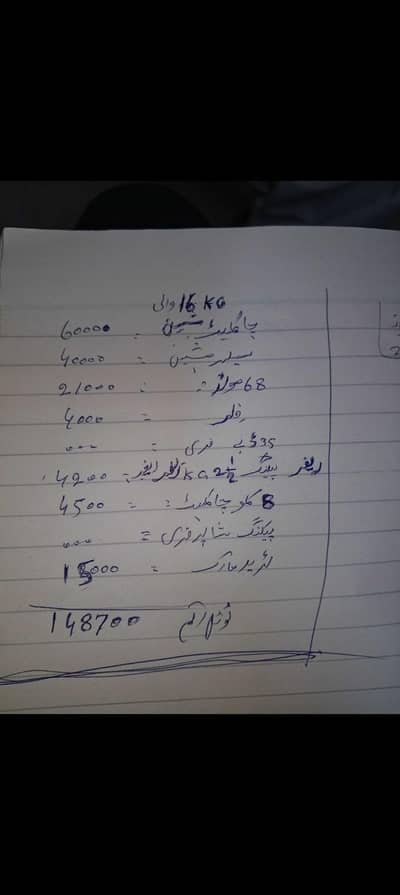 16 KG والی
چاکلیٹ مشین = 60000
سیلر مشین = 40000
68 مولڈ = 21000
فلر = 4000
35 ڈبے فری = ...
ریفر پیکنگ 2 1/2 KG = 4200
8 کلو چاکلیٹ = 4500
پیکنگ شاپر فری = ...
ٹریڈ مارک = 15000
ٹوٹل رقم 148700